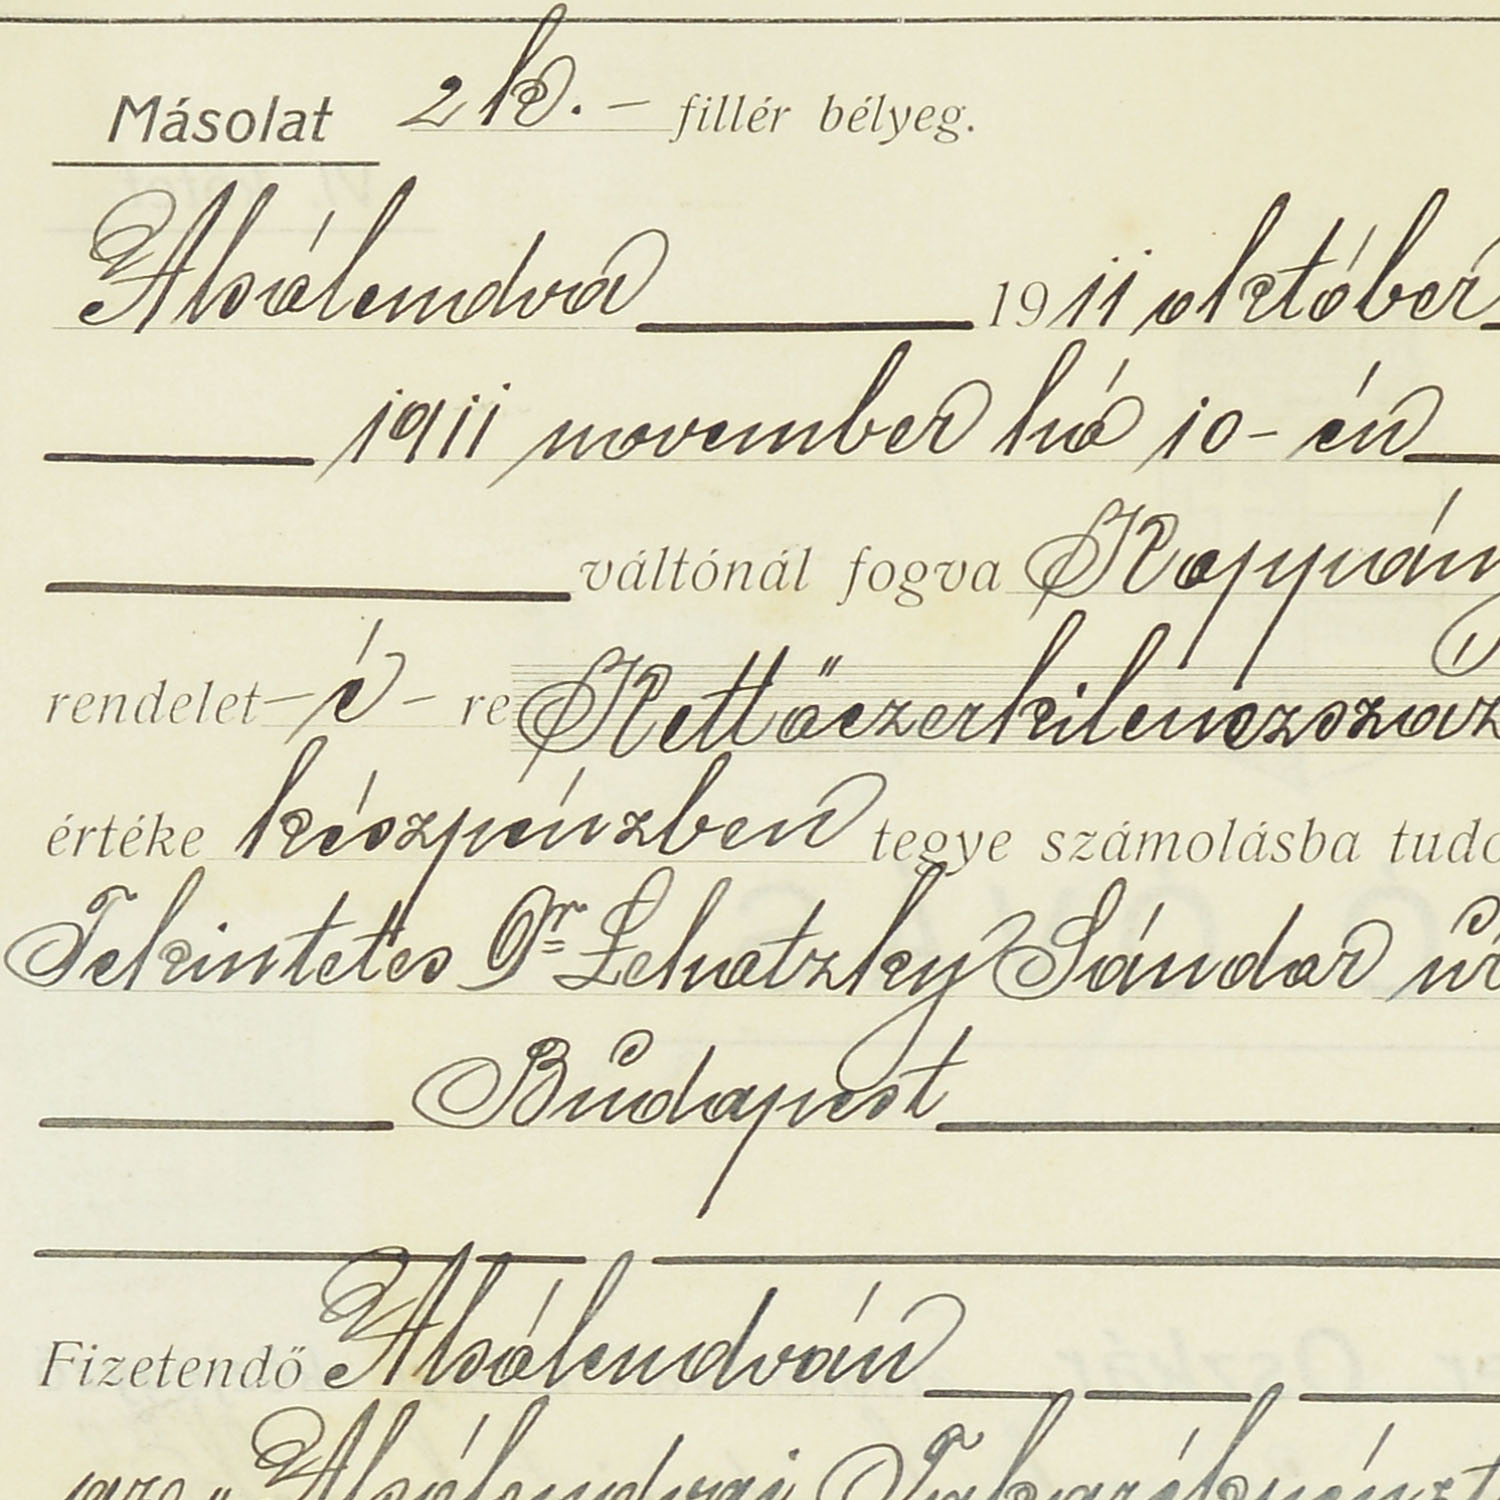 Másolat 2 k. – fillér bélyeg.
Alsólendva 1911 október
1911 november hó 10-én
váltónál fogva Koppány
rendelet – é – re Kettőezerkilenczszáz
értéke készpénzben tegye számolásba tudo
Tekintetes Dr Lehotzky Sándor úr
Budapest
Fizetendő Alsólendván
az „Alsólendvai Takarékpénzt